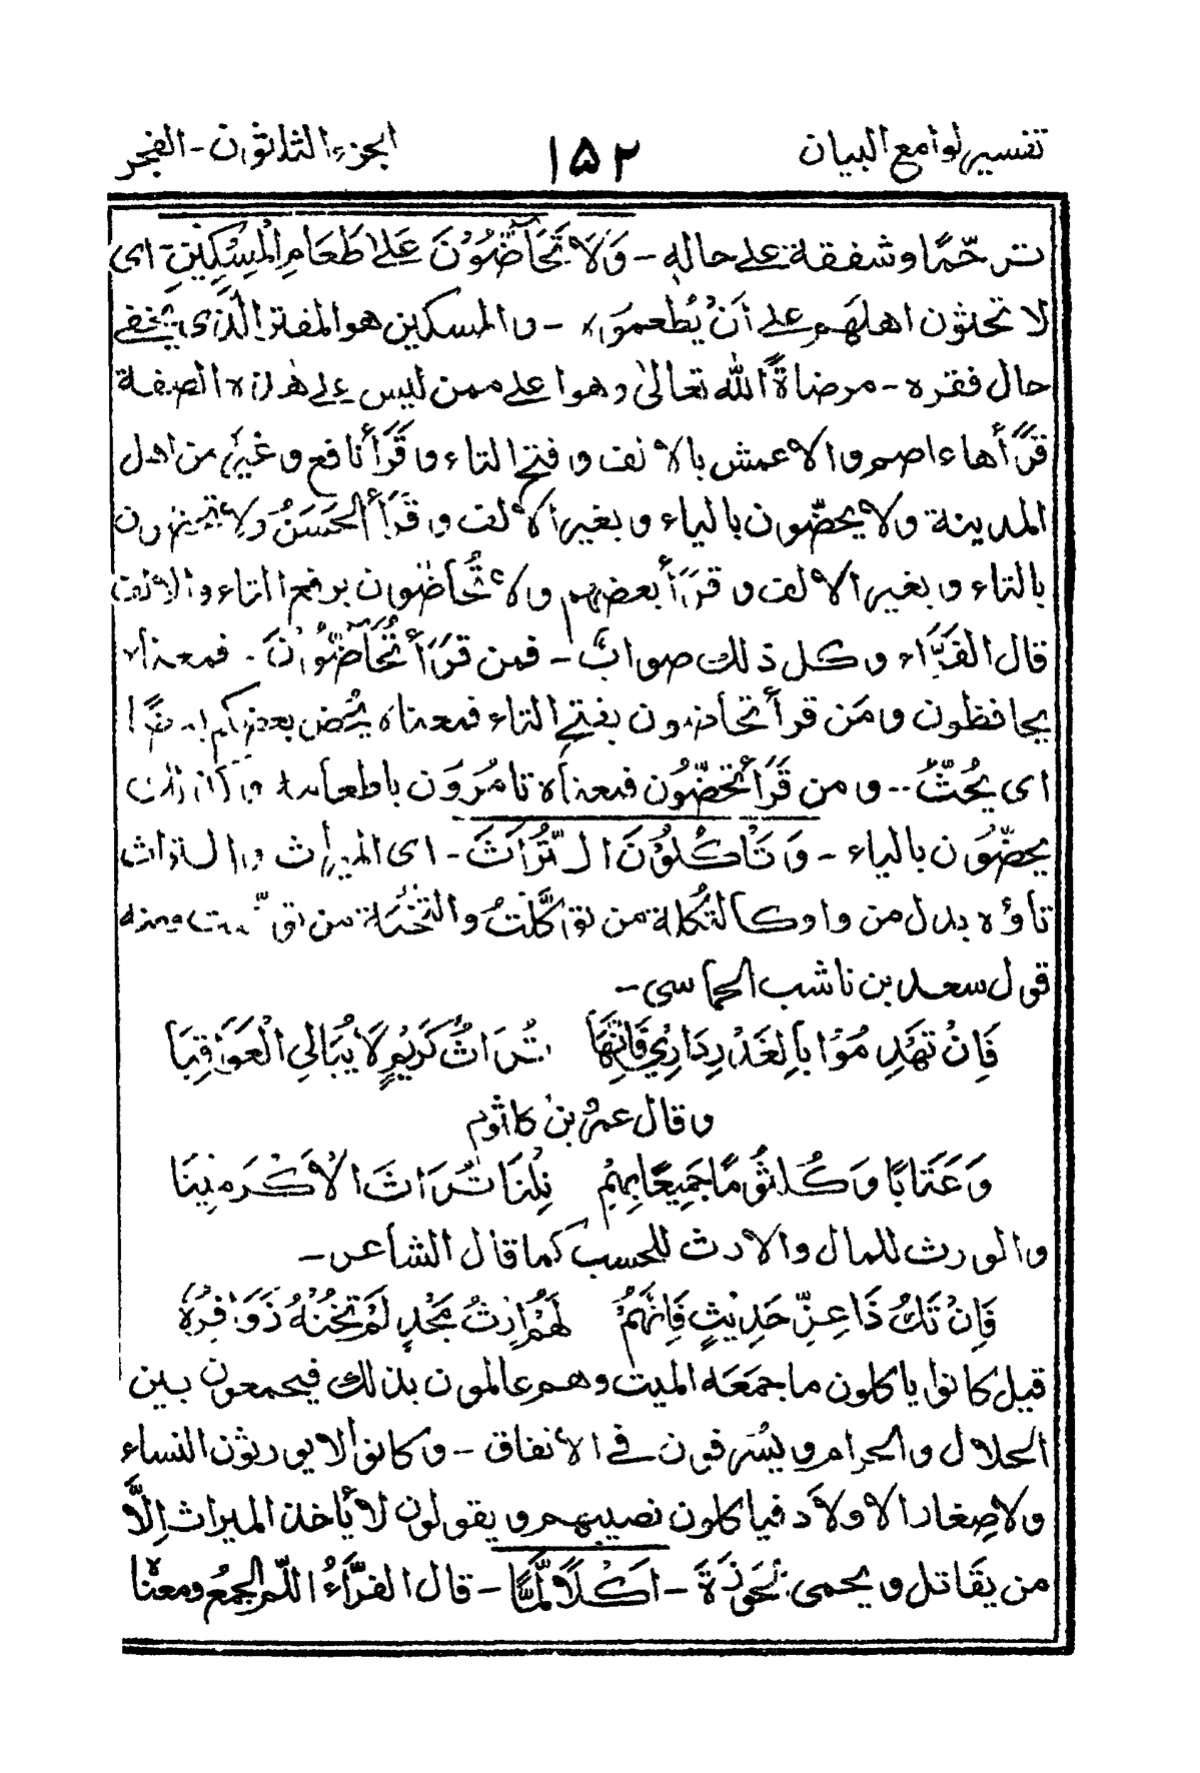 تفسير لوامع البيان
١٥٢
الجزء الثلاثون - الفجر
ترحّمًا وشفقة على حاله - وَلَا تَحَآضُّوْنَ عَلٰى طَعَامِ الْمِسْكِيْنِ - اى
لا تحثون اهلهم على أَنْ يُطعموه - والمسكين هو المفتر الّذى يخفى
حال فقره - مرضاةً الله تعالىٰ وهو اعلى ممن ليس على هٰذه الصفة
قَرَأها عاصم والاعمش بالالف وفتح التاء وقَرَأ نافع وغيره من اهل
المدينة ولا يحضّون بالياء وبغير الالف وقَرَأ الحَسَنُ ولا تحضون
بالتاء وبغير الالف وقَرَأ بعضهم ولا تُحاضون برفع التاء والالف
قال الفَرَّاء وكل ذلك صوابٌ - فمن قَرَأ تُحَآضُّوْنَ - فمعناه
يحافظون ومَن قرأ تحاضون بفتح التاء فمعناه يحُض بعضكم بعضًا
اى يُحُثّ - ومن قَرَأ تحُضّون فمعناه تامُرَوَن باطعامه وكان ذلك
يحضّون بالياء - وَتَاْكُلُوْنَ التُّرَاثَ - اى الميراث والتراث
تاؤه بدل من واو كالتُكلة من توكَّلتُ والتُخَمَة من ومنه
قول سعد بن ناشب الحماسى -
فَاِنْ تَهْدِمُوْا بِالْغَدْرِ دَارِيْ فَاِنَّهَا تُرَاثُ كَرِيْمٍ لَا يُبَالِي الْعَوَاقِبَا
وقال عمرو بن كلثوم
وَعَتَابًا وَكُلْثُوْمًا جَمِيْعًا بِهِمْ نِلْنَا تُرَاثَ الْاَكْرَمِيْنَا
والورث للمال والارث للحسب كما قال الشاعر -
فَاِنْ تَكُ ذَا عِزٍّ حَدِيْثٍ فَاِنَّهُمْ لَهُمْ اِرْثُ مَجْدٍ لَمْ تَخُنْهُ زَوَافِرُهٗ
قيل كانوا ياكلون ما جمَعَه الميت وهم عالمون بذلك فيجمعون بين
الحلال والحرام ويُسْرفون فى الأنفاق - وكانوا لا يورثون النساء
ولا صِغار الاولاد فياكلون نصيبهم ويقولون لا يأخذ الميراث اِلَّا
من يقَاتل ويحمى حَوْزَةً - اَكْلًا لَّمًّا - قال الفرَّاءُ اللّم الجمعُ ومعناه